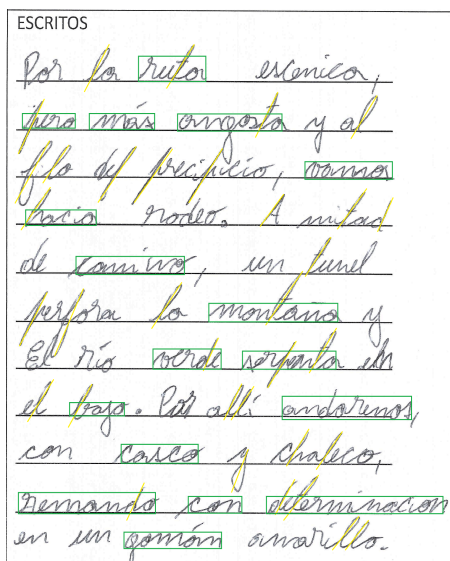 ESCRITOS
Por la ruta escenica,
pero más angosta y al
filo del precipicio, vamos
hacia rodeo. A mitad
de camino, un tunel
perfora la montaña y
El río verde serpenta en
el bajo. Por allí andaremos,
con casco y chaleco,
remando con determinacion
en un gomón amarillo.